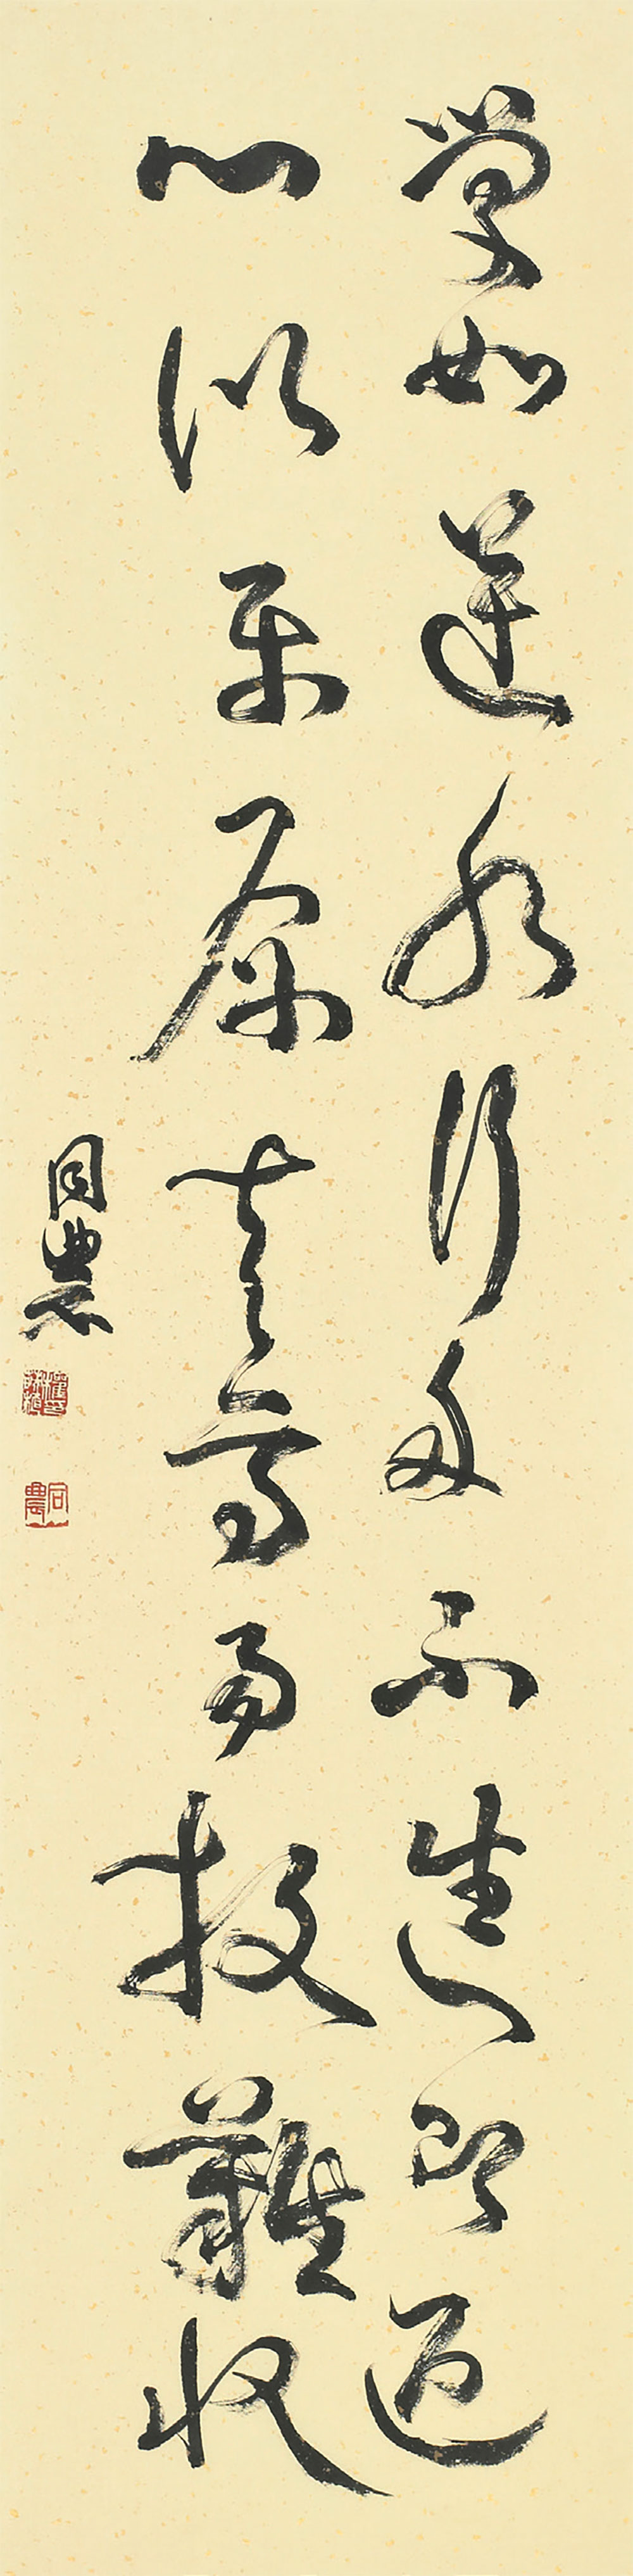 學如逆水行舟不進則退
心似平原走馬易放難收
同農
同農